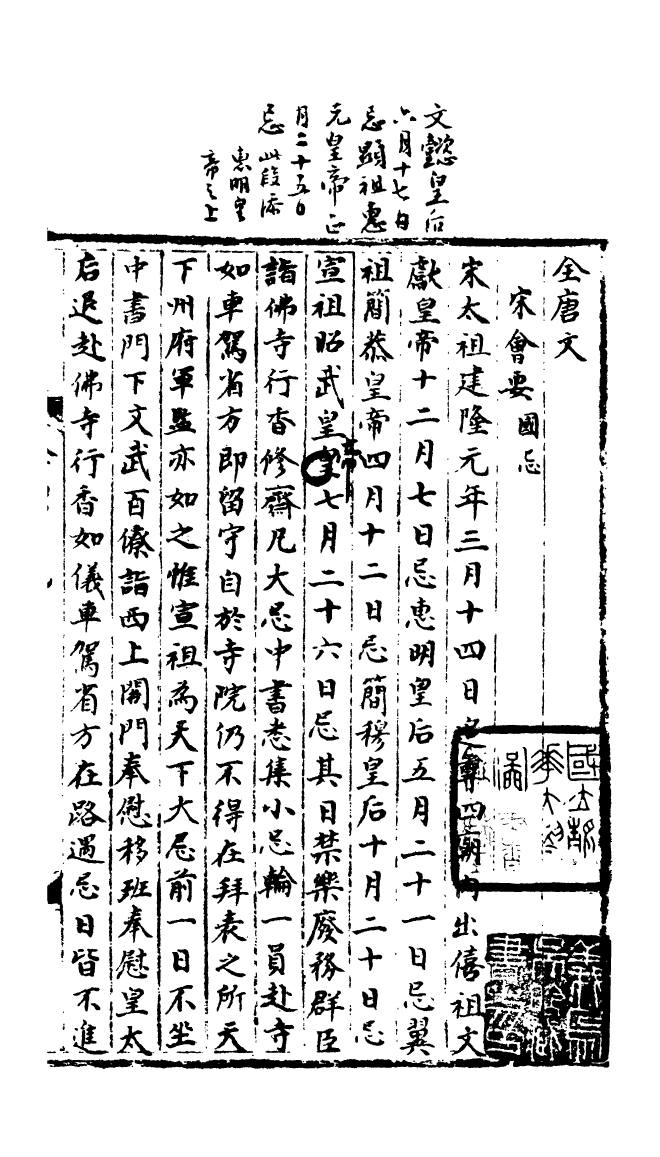 文懿皇后
六月十七日
忌顯祖惠
元皇帝正
月二十五日
忌 此段添
惠明皇
帝之上
全唐文
宋會要 國忌
宋太祖建隆元年三月十四日追尊四廟內出僖祖文
獻皇帝十二月七日忌惠明皇后五月二十一日忌翼
祖簡恭皇帝四月十二日忌簡穆皇后十月二十日忌
宣祖昭武皇帝七月二十六日忌其日禁樂廢務群臣
詣佛寺行香修齋凡大忌中書悉集小忌輪一員赴寺
如車駕省方即留守自於寺院仍不得在拜表之所天
下州府軍監亦如之惟宣祖為天下大忌前一日不坐
中書門下文武百僚詣西上閤門奉慰移班奉慰皇太
后退赴佛寺行香如儀車駕省方在路遇忌日皆不進